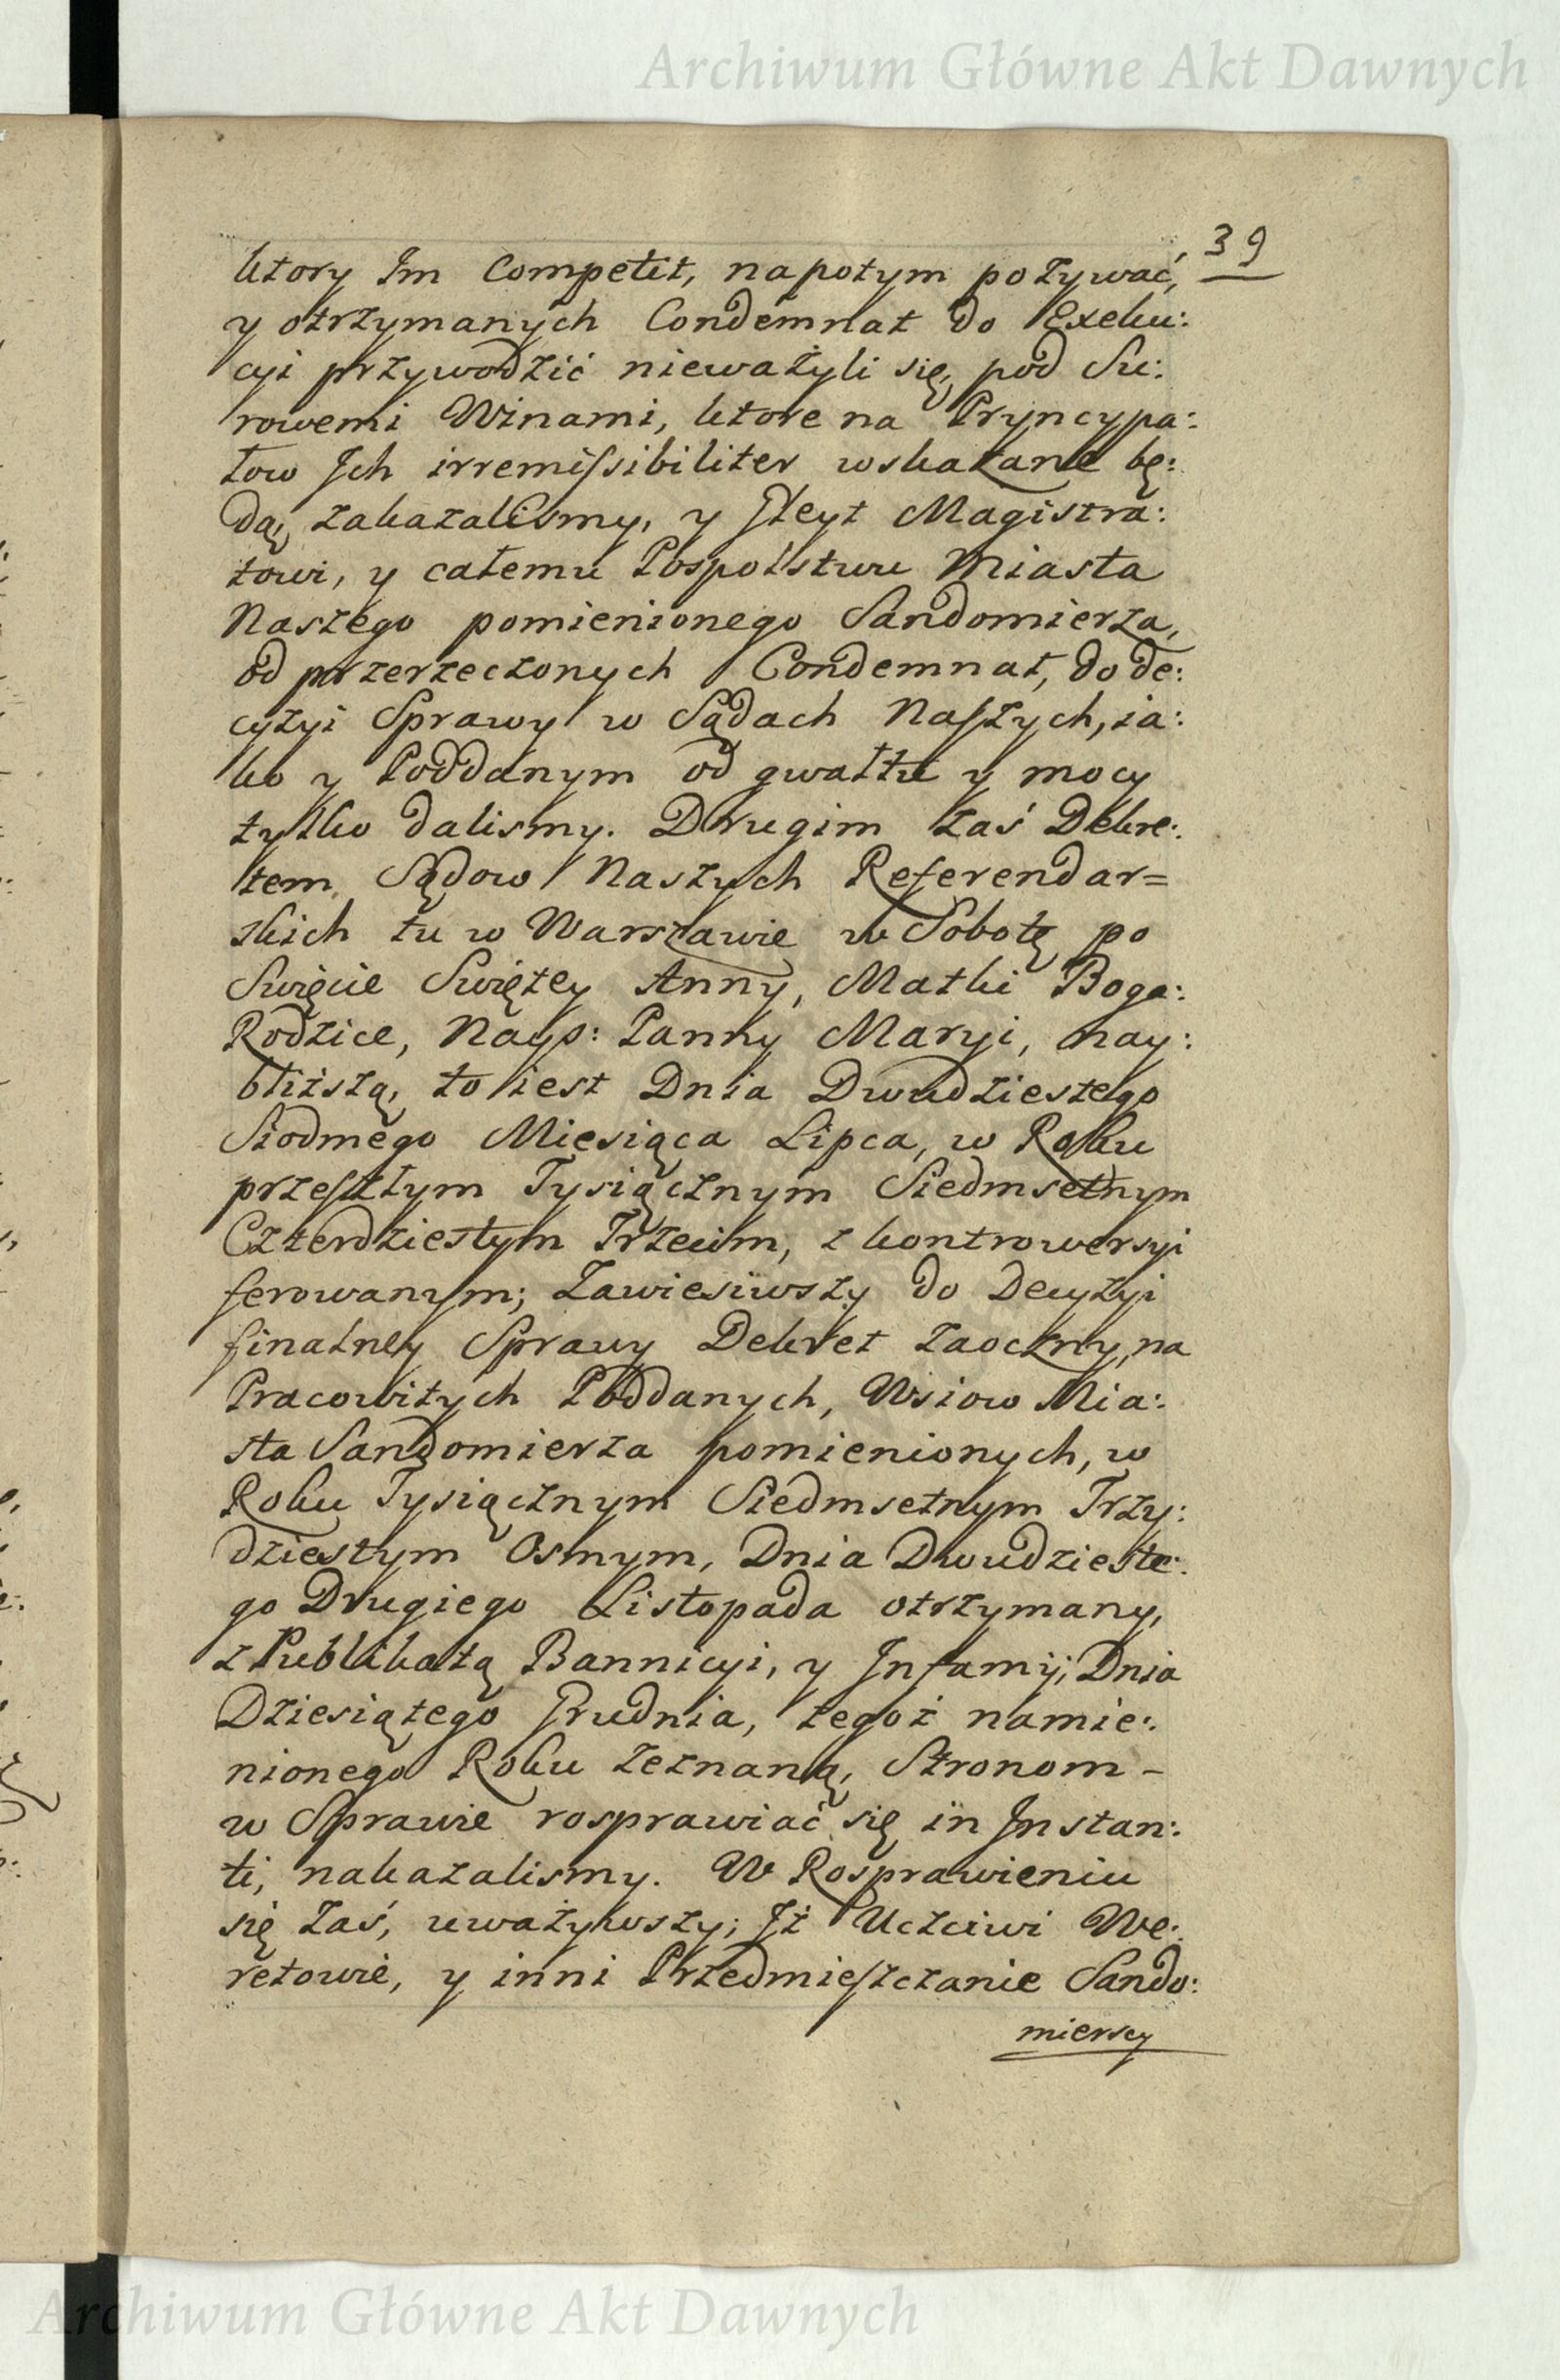 Archiwum Główne Akt Dawnych
39
ktory Im Competit, napotym pozywać,
y otrzymanych Condemnat do Exeku:
cyi przywodzić nieważyli się, pod Su:
rowemi Winami, ktore na Pryncypa:
łow Jch irremiſsibiliter wskazane bę:
dą, zakazalismy, y Gleyt Magistra:
towi, y całemu Pospolstwu Miasta
Naszego pomienionego Sandomierza,
od przerzeczonych Condemnat, do de:
cyzyi Sprawy w Sądach Naſzych, ia:
ko y Poddanym od gwałtu y mocy
tylko dalismy. Drugim zaś Dekre:
tem Sądow Naszych Referendar=
skich tu w Warszawie w Sobotę po
Swięcie Swiętey Anny, Matki Boga:
Rodzice, Nayś: Panny Maryi, nay:
bliższą, to iest Dnia Dwudziestego
Siodmego Miesiąca Lipca, w Roku
przeſzłym Tysiącznym Siedmsetnym
Czterdziestym Trzecim, z kontrowersyi
ferowanym; Zawiesiwszy do Decyzyi
finalney Sprawy Dekret zaoczny, na
Pracowitych Poddanych, Wsiow Mia:
sta Sandomierza pomienionych, w
Roku Tysiącznym Siedmsetnym Trzy:
dziestym Osmym, Dnia Dwudzieste:
go Drugiego Listopada otrzymany,
z Publikatą Bannicyi, y Jnfamij, Dnia
Dziesiątego Grudnia, tegoż namie:
nionego Roku zeznaną, Stronom -
w Sprawie rosprawiać się in Jnstan:
ti, nakazalismy. W Rosprawieniu
się zaś, uważywszy; Jż Uczciwi We:
retowie, y inni Przedmieſzczanie Sando:
mierscy
Archiwum Główne Akt Dawnych